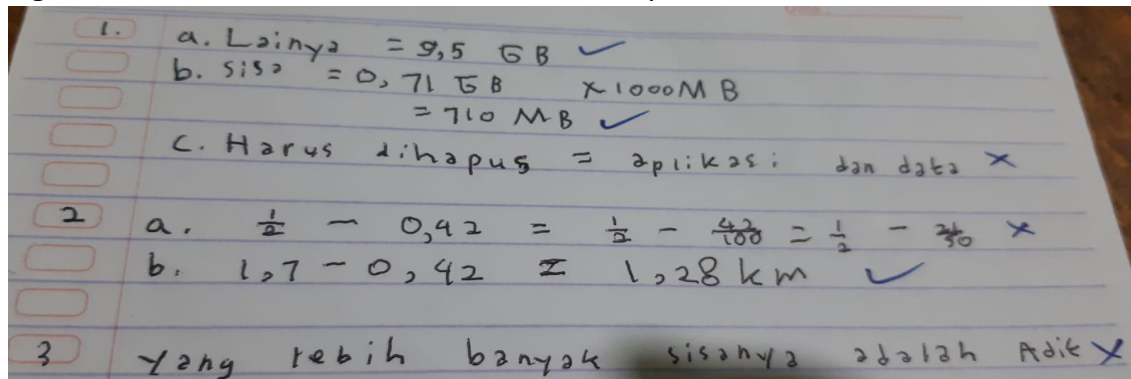 1. a. Lainya = 9,5 GB ✓
b. sisa = 0,71 GB x1000MB
= 710 MB ✓
c. Harus dihapus = aplikasi dan data ×
2 a. 1/2 - 0,42 = 1/2 - 42/100 = 1/2 - 21/50 ×
b. 1,7 - 0,42 = 1,28 km ✓
3 Yang lebih banyak sisanya adalah Adik ×